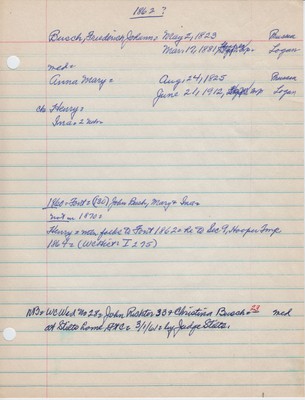 1862?
Busch, Friedrich Johann = May 2, 1823 Prussia
Mar. 17, 1881, Logan
med =
Anna Mary = Aug. 24, 1825 Prussia
June 21, 1912, Logan
ch Henry =
Ina =
1860 = Font = (30) John Bush, Mary & Ina =
not in 1870 =
Henry = men folks to Font 1862 = to Sec 9, Hooper Twp.
1864 = (WC Hist = I 275)
NB = WC Wed No 28 = John Richter 30 & Christina Busch = med
at State home, = 3/1/61 = by Judge State.